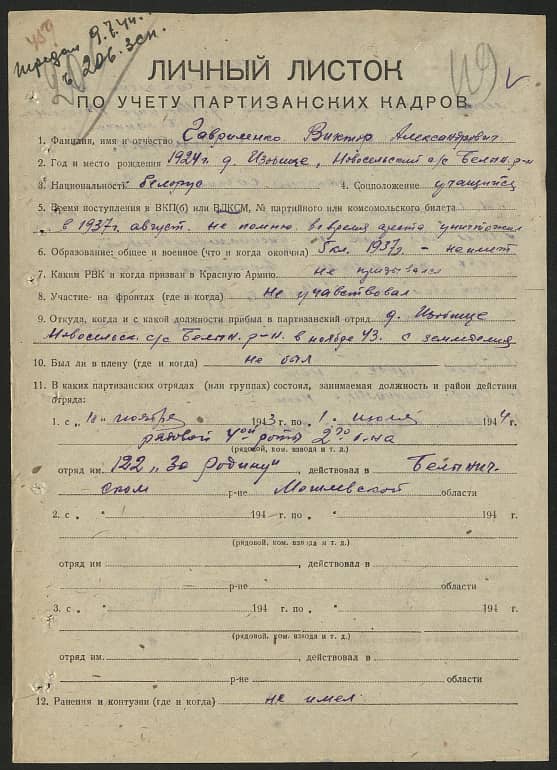 459
Передан 9.7.44г.
в 206. зсп.
119
ЛИЧНЫЙ ЛИСТОК
ПО УЧЕТУ ПАРТИЗАНСКИХ КАДРОВ
1. Фамилия, имя и отчество Гавриленко Виктор Александрович
2. Год и место рождения 1924г. д. Изобище, Новосельский с/с Белын. р-н
3. Национальность белорус 4. Соцположение учащийся
5. Время поступления в ВКП(б) или ВЛКСМ, № партийного или комсомольского билета
в 1937г. август. не помню. во время ареста уничтожил
6. Образование: общее и военное (что и когда окончил) 5 кл. 1937г. - не имеет
7. Каким РВК и когда призван в Красную Армию. не призывался
8. Участие на фронтах (где и когда) не учавствовал
9. Откуда, когда и с какой должности прибыл в партизанский отряд д. Изобище
Новосельск. с/с Белын. р-н. в ноябре 43. с земледелия
10. Был ли в плену (где и когда) не был
11. В каких партизанских отрядах (или группах) состоял, занимаемая должность и район действия
отряда:
1. с „10" ноября 1943 г. по „1" июля 1944 г.
рядовой 4ой роты 2го б-на
(рядовой, ком. взвода и т. д.)
отряд им. 122 „За Родину", действовал в Белынич-
ском р-не Могилевской области
2. с „ " 194 г. по „ " 194 г.
(рядовой, ком. взвода и т. д.)
отряд им , действовал в
р-не области
3. с „ " 194 г. по „ " 194 г.
(рядовой, ком. взвода и т. д.)
отряд им. , действовал в
р-не области
12. Ранения и контузии (где и когда) не имел